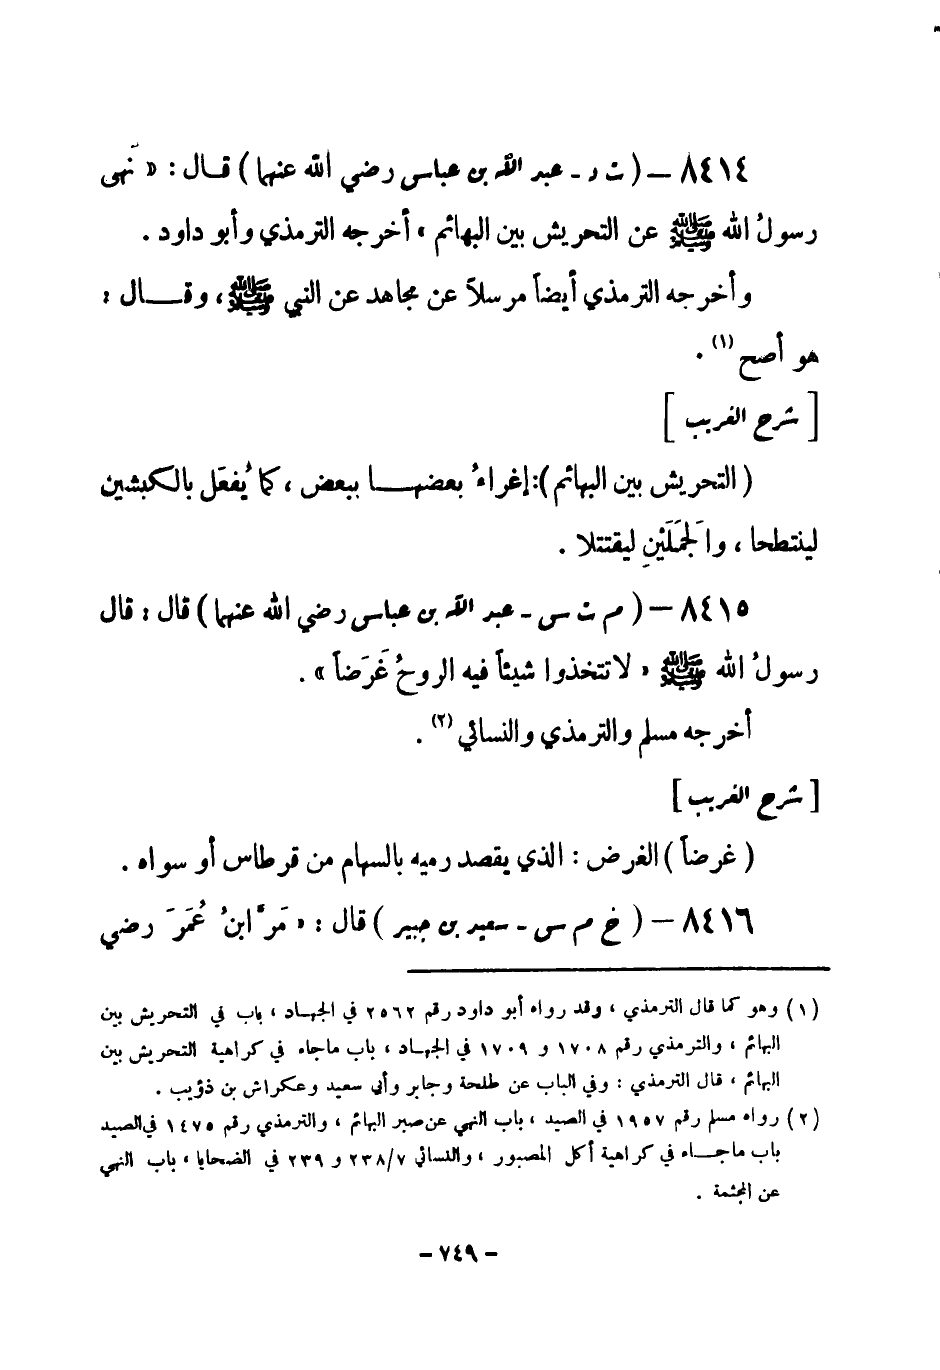 ٨٤١٤ — ( ت د - عبد الله بن عباس رضي الله عنهما ) قـال : « نَهى
رسولُ الله ﷺ عن التحريش بين البهائم » أخرجه الترمذي وأبو داود .
وأخرجه الترمذي أيضاً مرسلاً عن مجاهد عن النبي ﷺ ، وقـــال :
هو أصح (١) .
[ شرح الغريب ]
( التحريش بين البهائم ): إغراءُ بعضهـــا ببعض ، كما يُفعَل بالكبشين
لينتطحا ، والجَمَلَيْنِ ليقتتلا .
٨٤١٥ — ( م ت س - عبد الله بن عباس رضي الله عنهما ) قال : قال
رسولُ الله ﷺ « لا تتخذوا شيئاً فيه الروحُ غَرَضاً » .
أخرجه مسلم والترمذي والنسائي (٢) .
[ شرح الغريب ]
( غرضاً ) الغرض : الذي يقصد رميه بالسهام من قرطاس أو سواه .
٨٤١٦ — ( خ م س - سعيد بن جبير ) قال : « مَرَّ ابنُ عُمَرَ رضي
(١) وهو كما قال الترمذي ، وقد رواه أبو داود رقم ٢٥٦٢ في الجهـاد ، باب في التحريش بين
البهائم ، والترمذي رقم ١٧٠٨ و ١٧٠٩ في الجهـاد ، باب ماجاء في كراهية التحريش بين
البهائم ، قال الترمذي : وفي الباب عن طلحة وجابر وأبي سعيد وعكراش بن ذؤيب .
(٢) رواه مسلم رقم ١٩٥٧ في الصيد ، باب النهي عن صبر البهائم ، والترمذي رقم ١٤٧٥ في الصيد
باب ماجـــاء في كراهية أكل المصبور ، والنسائي ٢٣٨/٧ و ٢٣٩ في الضحايا ، باب النهي
عن المجثمة .
- ٧٤٩ -